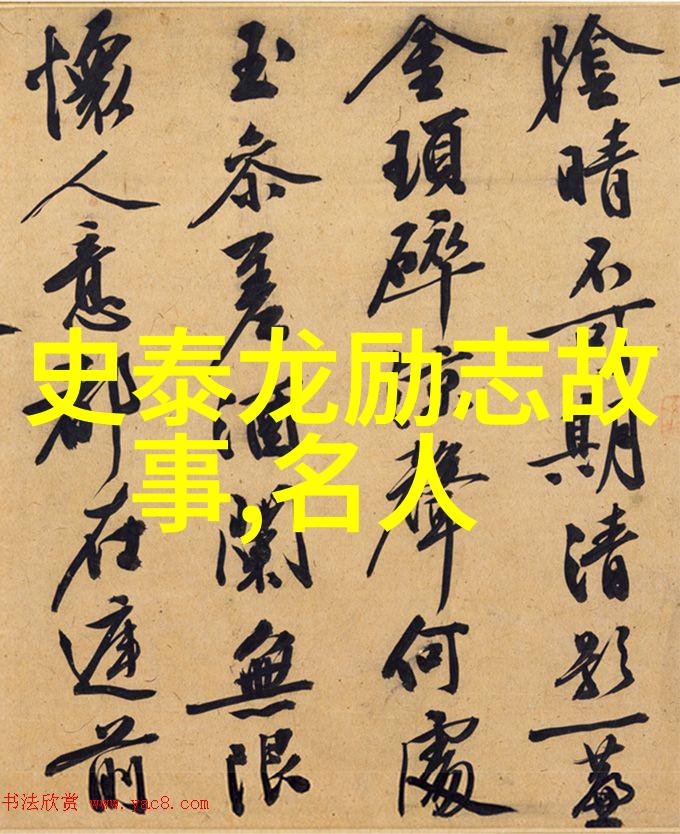 陰晴不可期清影一
金瑣碎涼聲何處
玉參差酒闌無限
懷人意都在前
史泰龙励志故
事,名人
书法欣赏 www.yac8.com